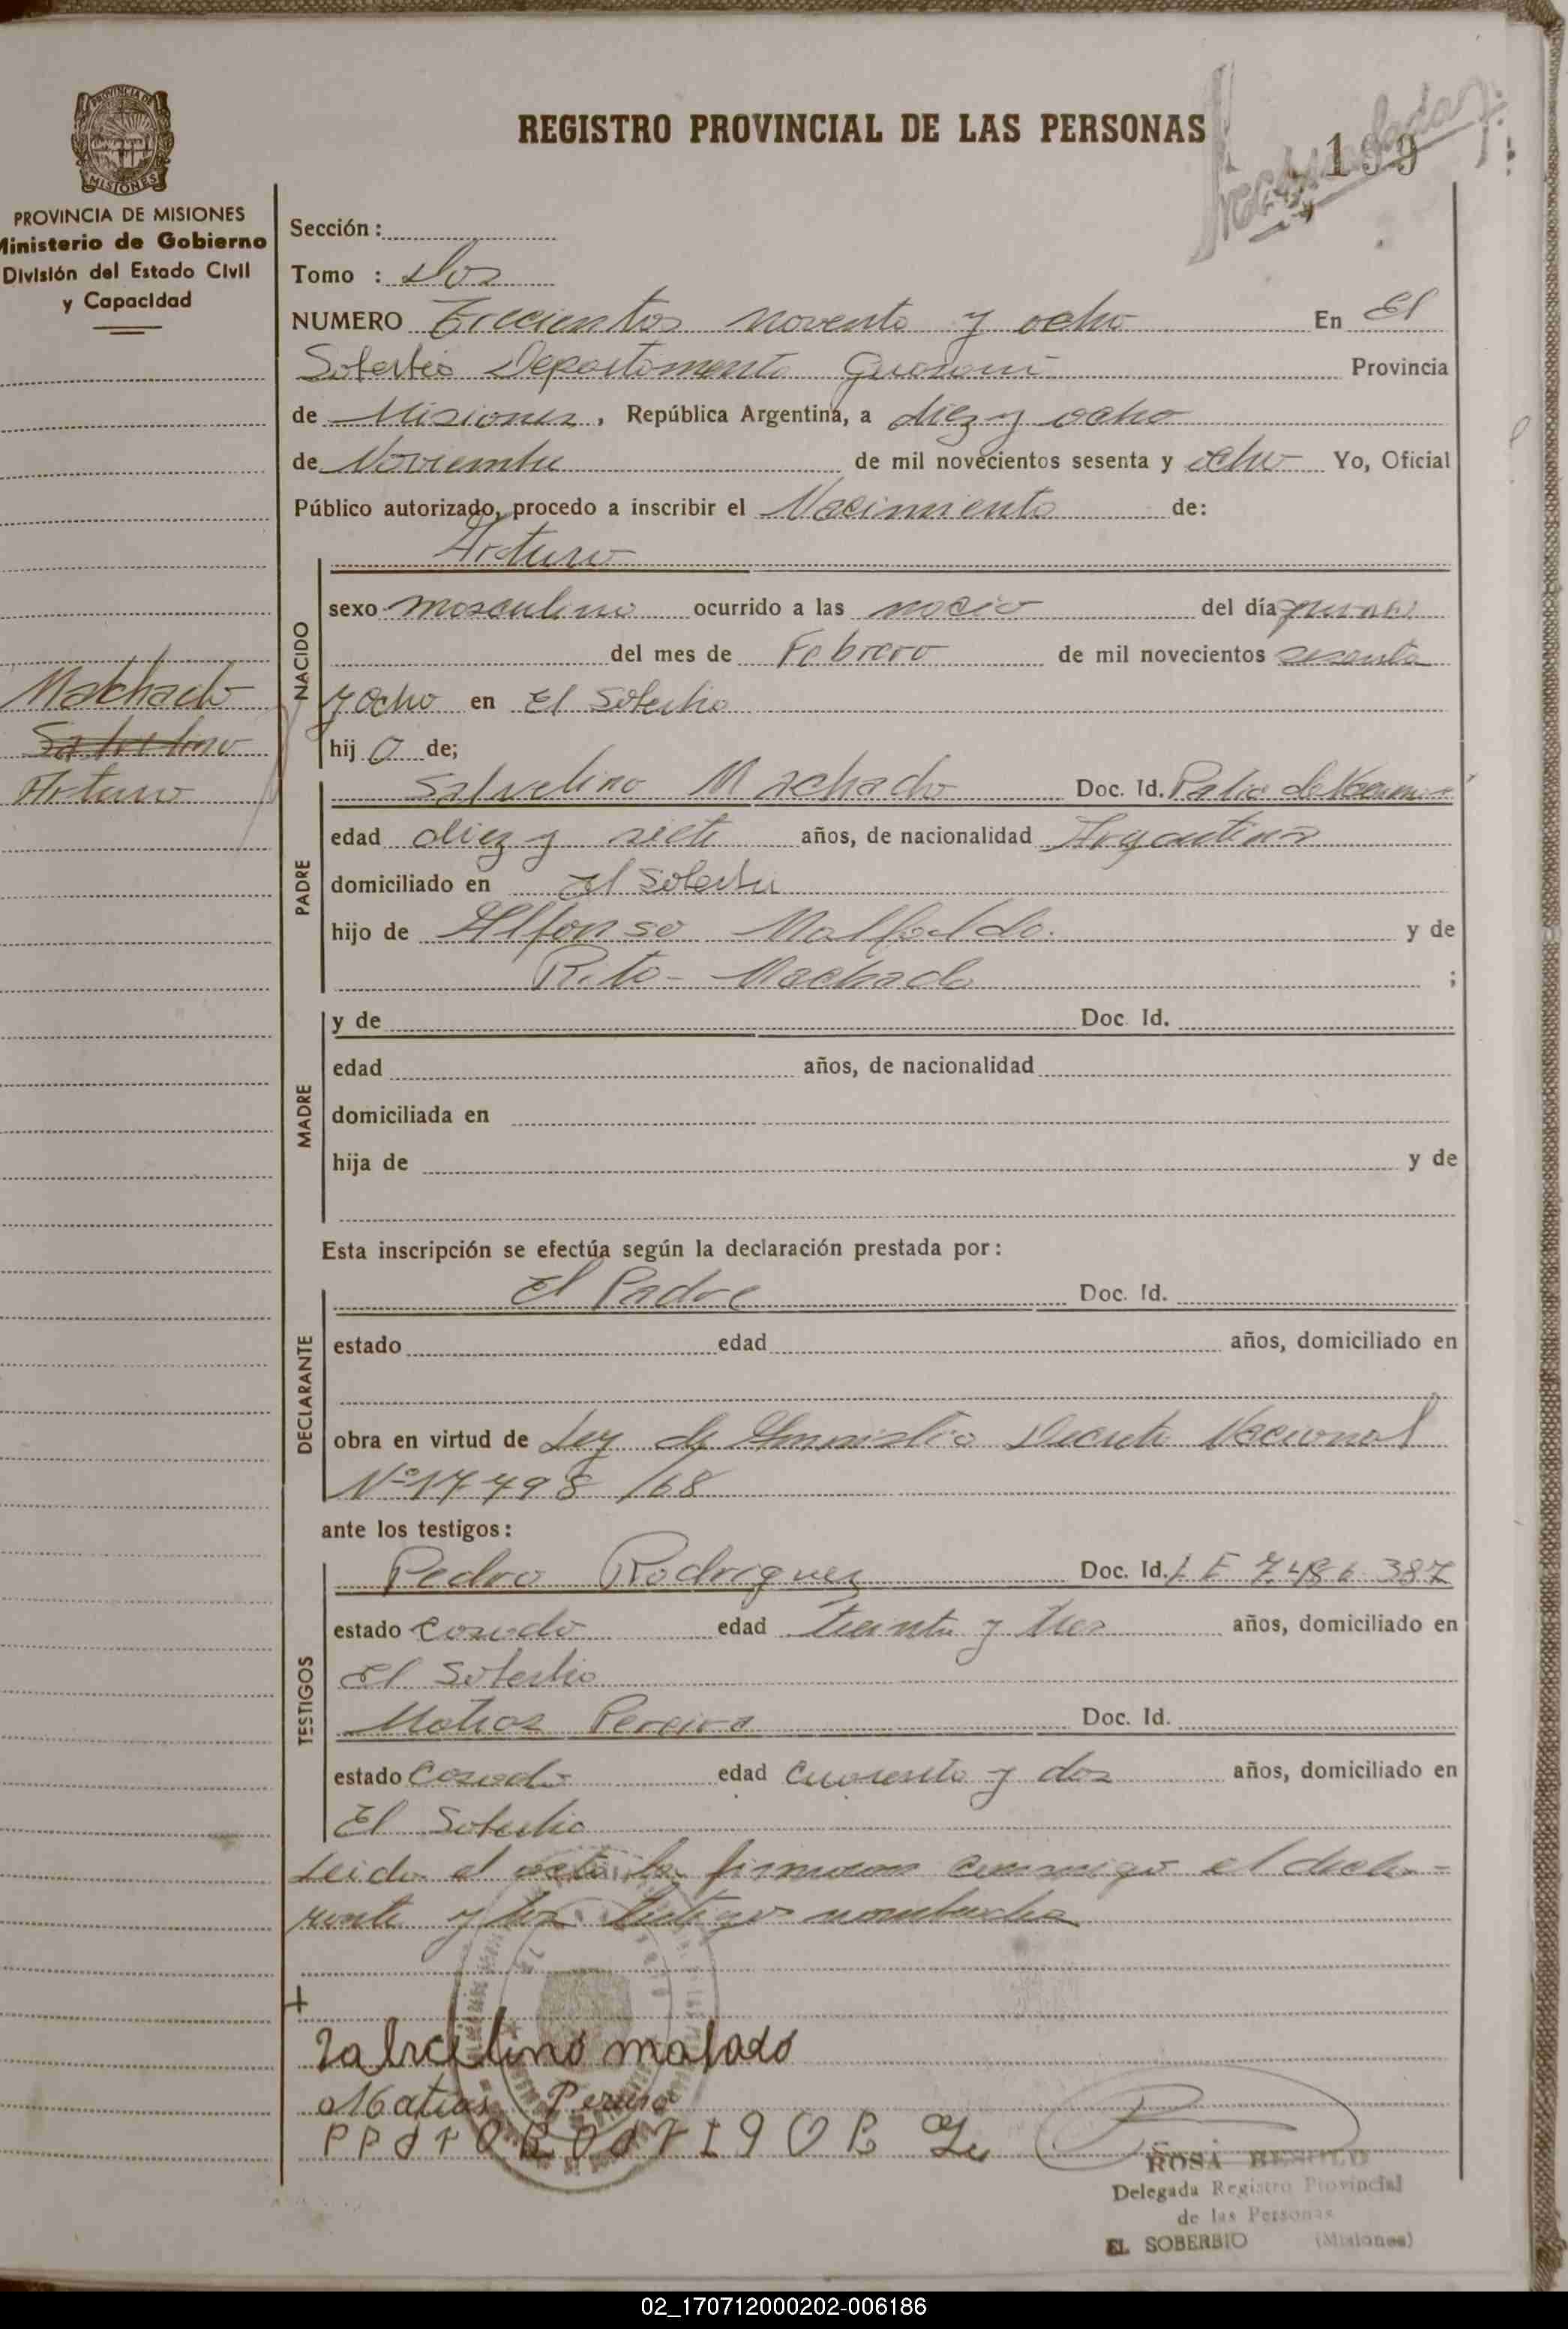 PROVINCIA DE MISIONES
Ministerio de Gobierno
División del Estado Civil
y Capacidad
REGISTRO PROVINCIAL DE LAS PERSONAS
199
Sección :
Tomo : Dos
NUMERO Trecientos noventa y ocho En El
Soberbio Departamento Guarani Provincia
de Misiones, República Argentina, a diez y ocho
de Noviembre de mil novecientos sesenta y ocho Yo, Oficial
Público autorizado, procedo a inscribir el Nacimiento de:
Arturo
NACIDO
sexo masculino ocurrido a las nació del día
del mes de Febrero de mil novecientos sesenta
y ocho en El Soberbio
hij o de;
Machado
Salvelino
Arturo
PADRE
Salvelino Machado Doc. Id. Patio de
edad diez y siete años, de nacionalidad Argentina
domiciliado en El Soberbio
hijo de Alfonso y de
Rita Machado ;
MADRE
y de Doc. Id.
edad años, de nacionalidad
domiciliada en
hija de y de
Esta inscripción se efectúa según la declaración prestada por :
DECLARANTE
El Padre Doc. Id.
estado edad años, domiciliado en
obra en virtud de Ley de Amnistia Decreto Nacional
Nº 17498/68
ante los testigos :
TESTIGOS
Pedro Rodriguez Doc. Id. L E 7.486.387
estado casado edad treinta y tres años, domiciliado en
El Soberbio
Matias Pereira Doc. Id.
estado Casado edad cuarenta y dos años, domiciliado en
El Soberbio
Leido el acta la firmaron conmigo el decla-
rante y los testigos nombrados
Matias Pereira
ROSA
Delegada Registro Provincial
de las Personas
EL SOBERBIO (Misiones)
02_170712000202-006186